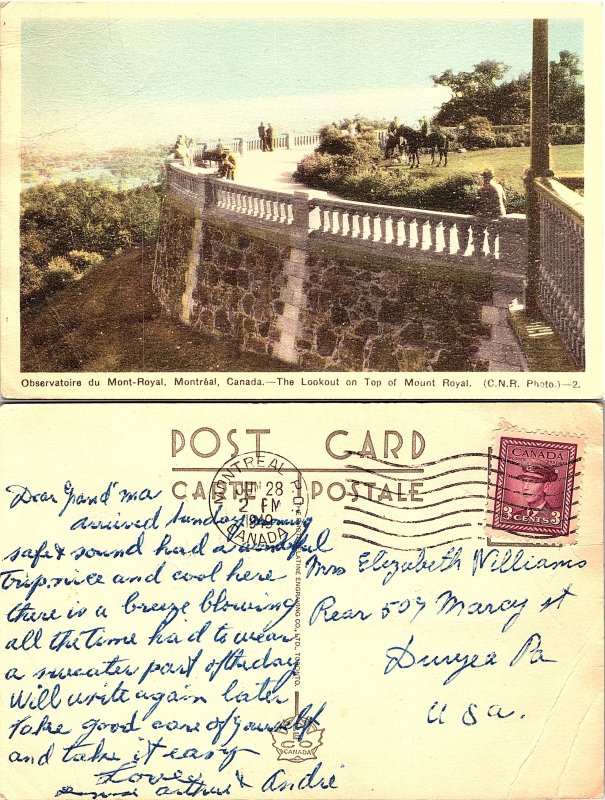 Observatoire du Mont-Royal, Montréal, Canada.—The Lookout on Top of Mount Royal. (C.N.R. Photo.)—2.
POST CARD
CARTE POSTALE
MONTREAL P.Q.
JU 28
2 PM
1949
CANADA
CANADA
3 CENTS 3
Dear Grand'ma
arrived Sunday morning
safe & sound had a wonderful
trip, nice and cool here
there is a breeze blowing
all the time had to wear
a sweater part of the day
Will write again later
Take good care of yourself
and take it easy
Love
Arthur & André
Mrs Elizabeth Williams
Rear 507 Marcy st
Duryea Pa
USA.
ENGRAVING CO., LTD., TORONTO.
CANADA